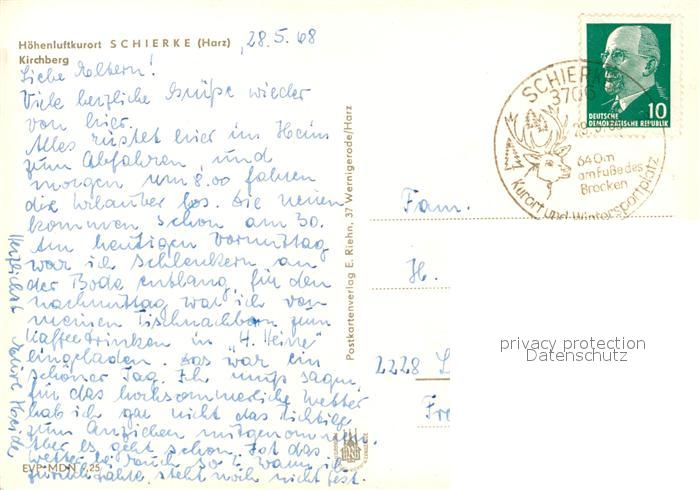 Höhenluftkurort SCHIERKE (Harz)
Kirchberg
28.5.68
Liebe Eltern!
Viele herzliche Grüße wieder
von hier.
Alles rüstet hier im Heim
zum Abfahren und
morgen um 8.00 fahren
die Urlauber los. Die neuen
kommen schon am 30.
Am heutigen Vormittag
war ich schlenkern an
der Bode entlang, für den
Nachmittag war ich von
meinen Tischnachbarn zum
Kaffeetrinken in "H. Heine"
eingeladen. Das war ein
schöner Tag. Ich muß sagen,
für das hochsommerliche Wetter
hab ich gar nicht das Richtige
zum Anziehen mitgenommen.
Aber es geht schon. Ist das
Wetter bei euch so? Wann ich
steht noch nicht fest.
Herzlichst
Heide
EVP MDN ,25
Postkartenverlag E. Riehn, 37 Wernigerode/Harz
SCHIERKE
3706
640m
am Fuße des
Brocken
Kurort und Wintersportplatz
10
DEUTSCHE
DEMOKRATISCHE REPUBLIK
Fam.
H.
2228
privacy protection
Datenschutz